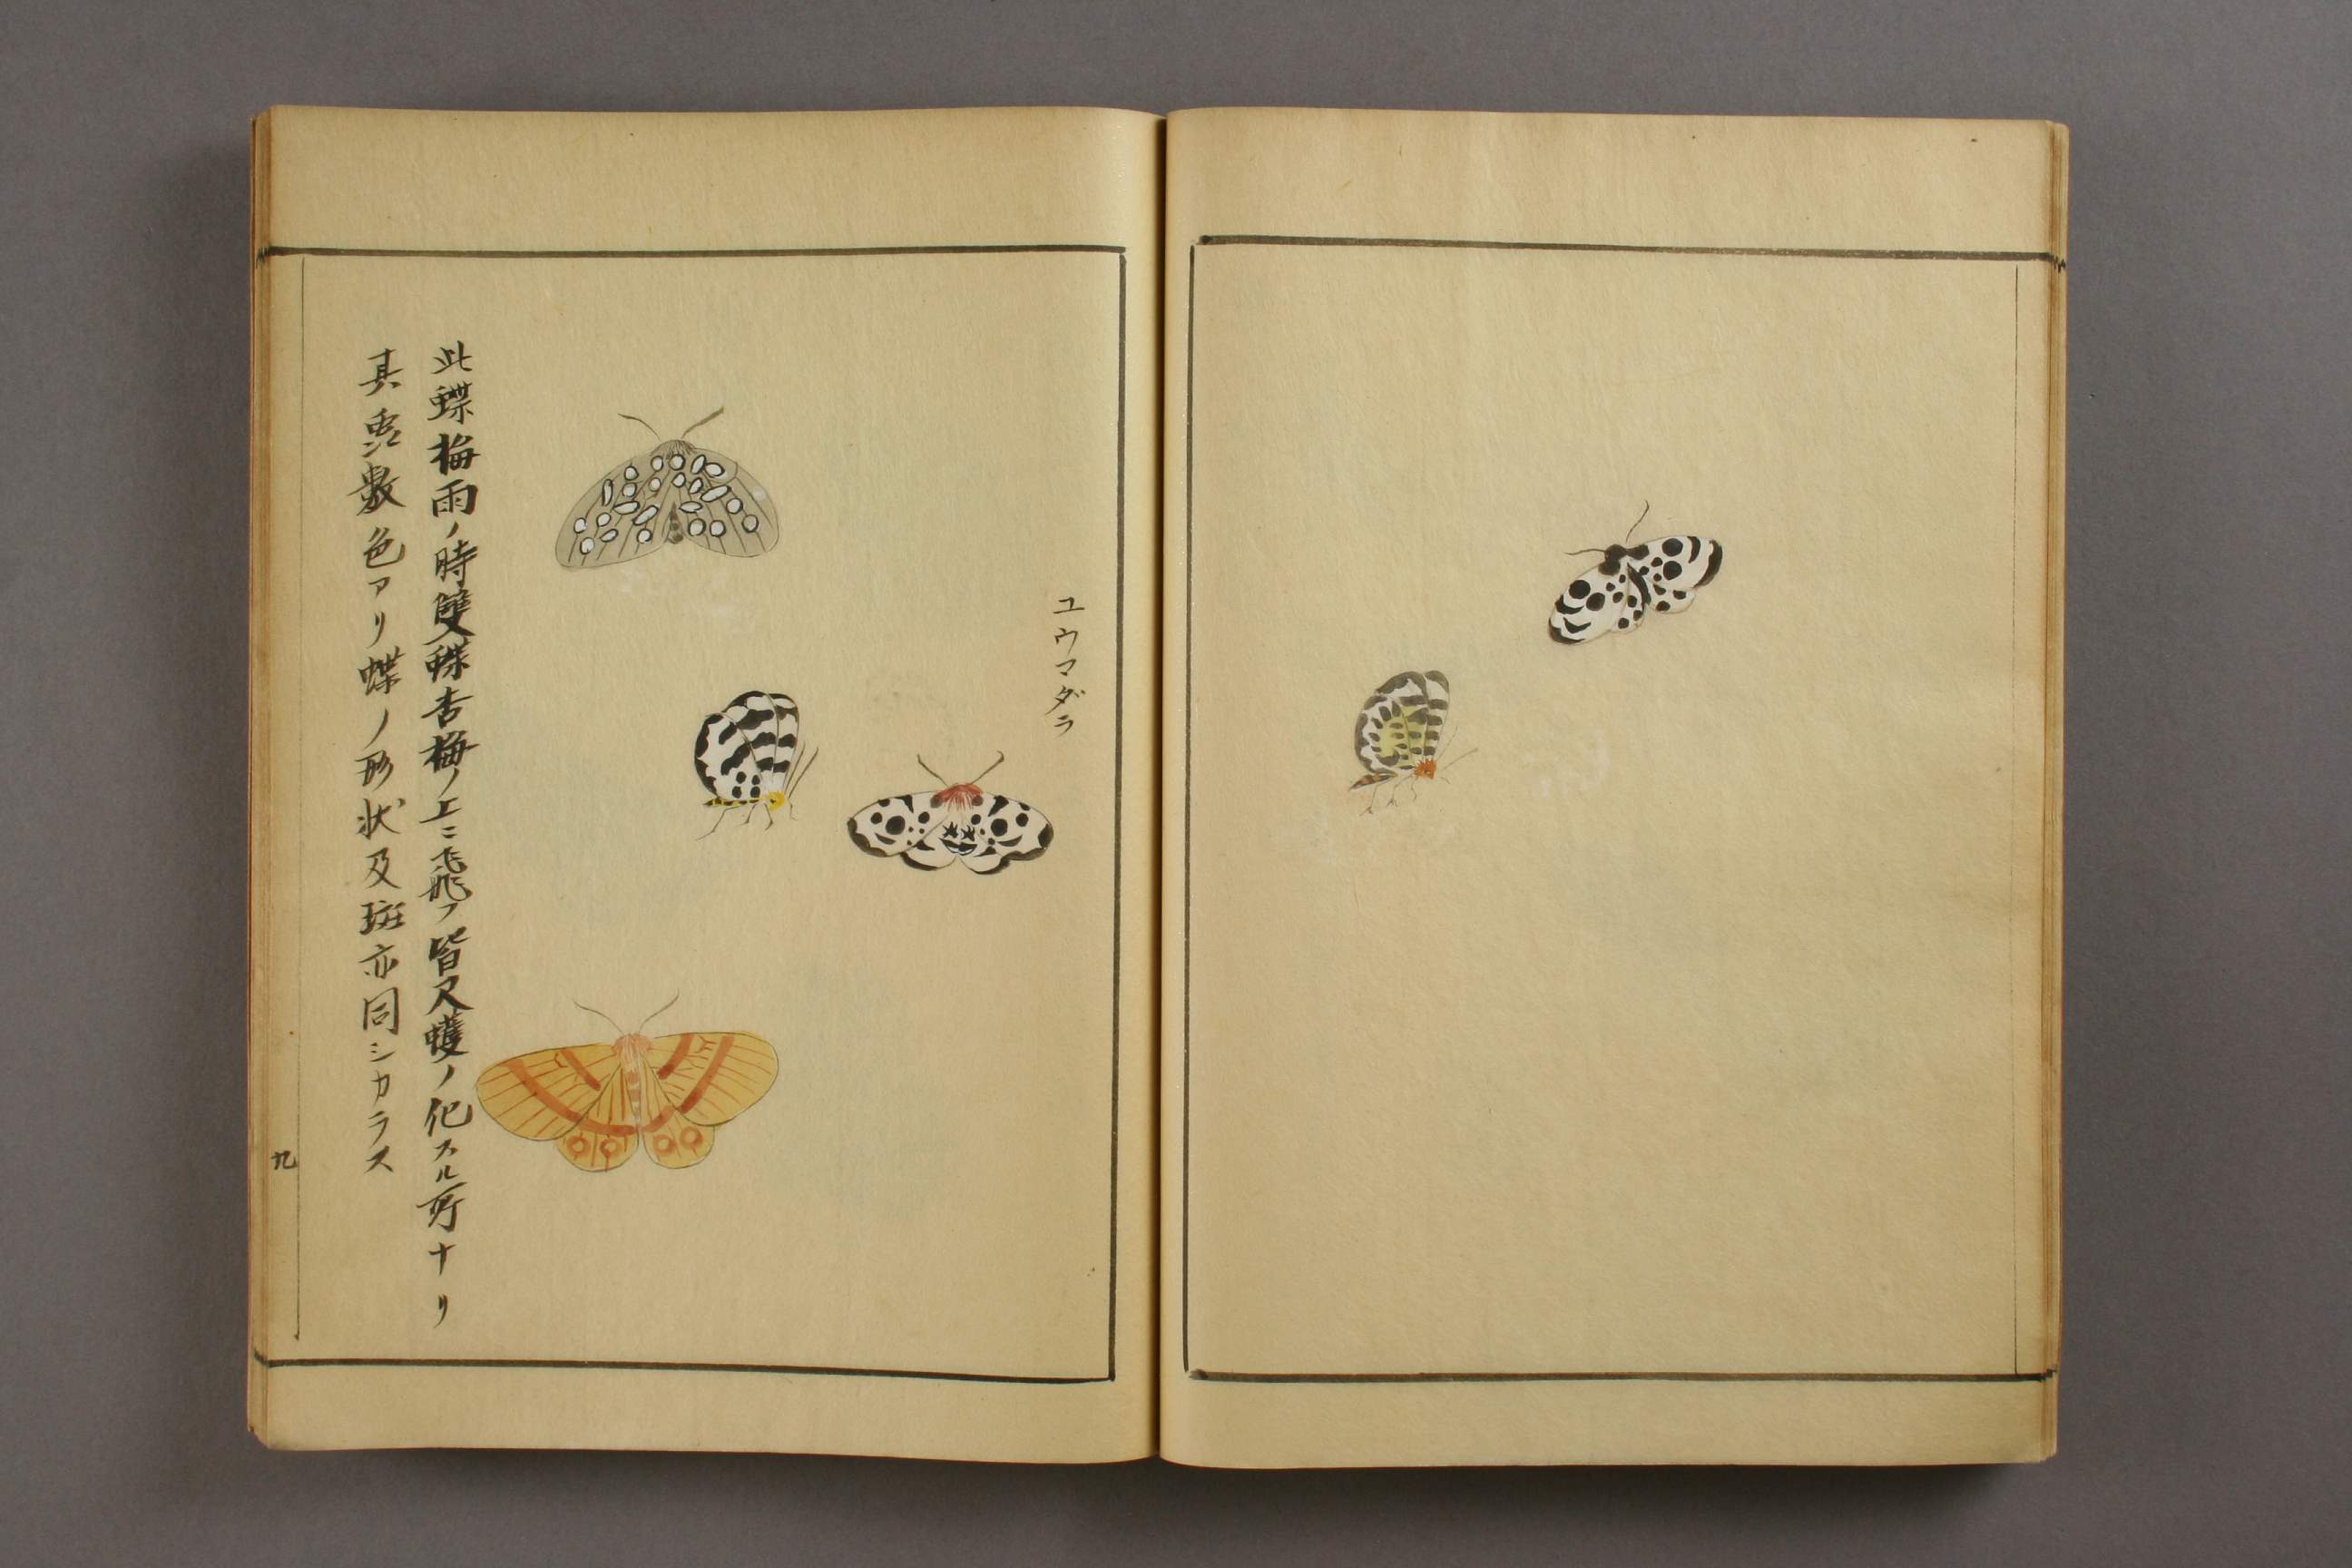 ユウマダラ
此蝶梅雨ノ時雙雙杏梅ノ上ニ飛フ皆尺蠖ノ化スル所ナリ
其 数色アリ蝶ノ形状及斑亦同シカラス
九